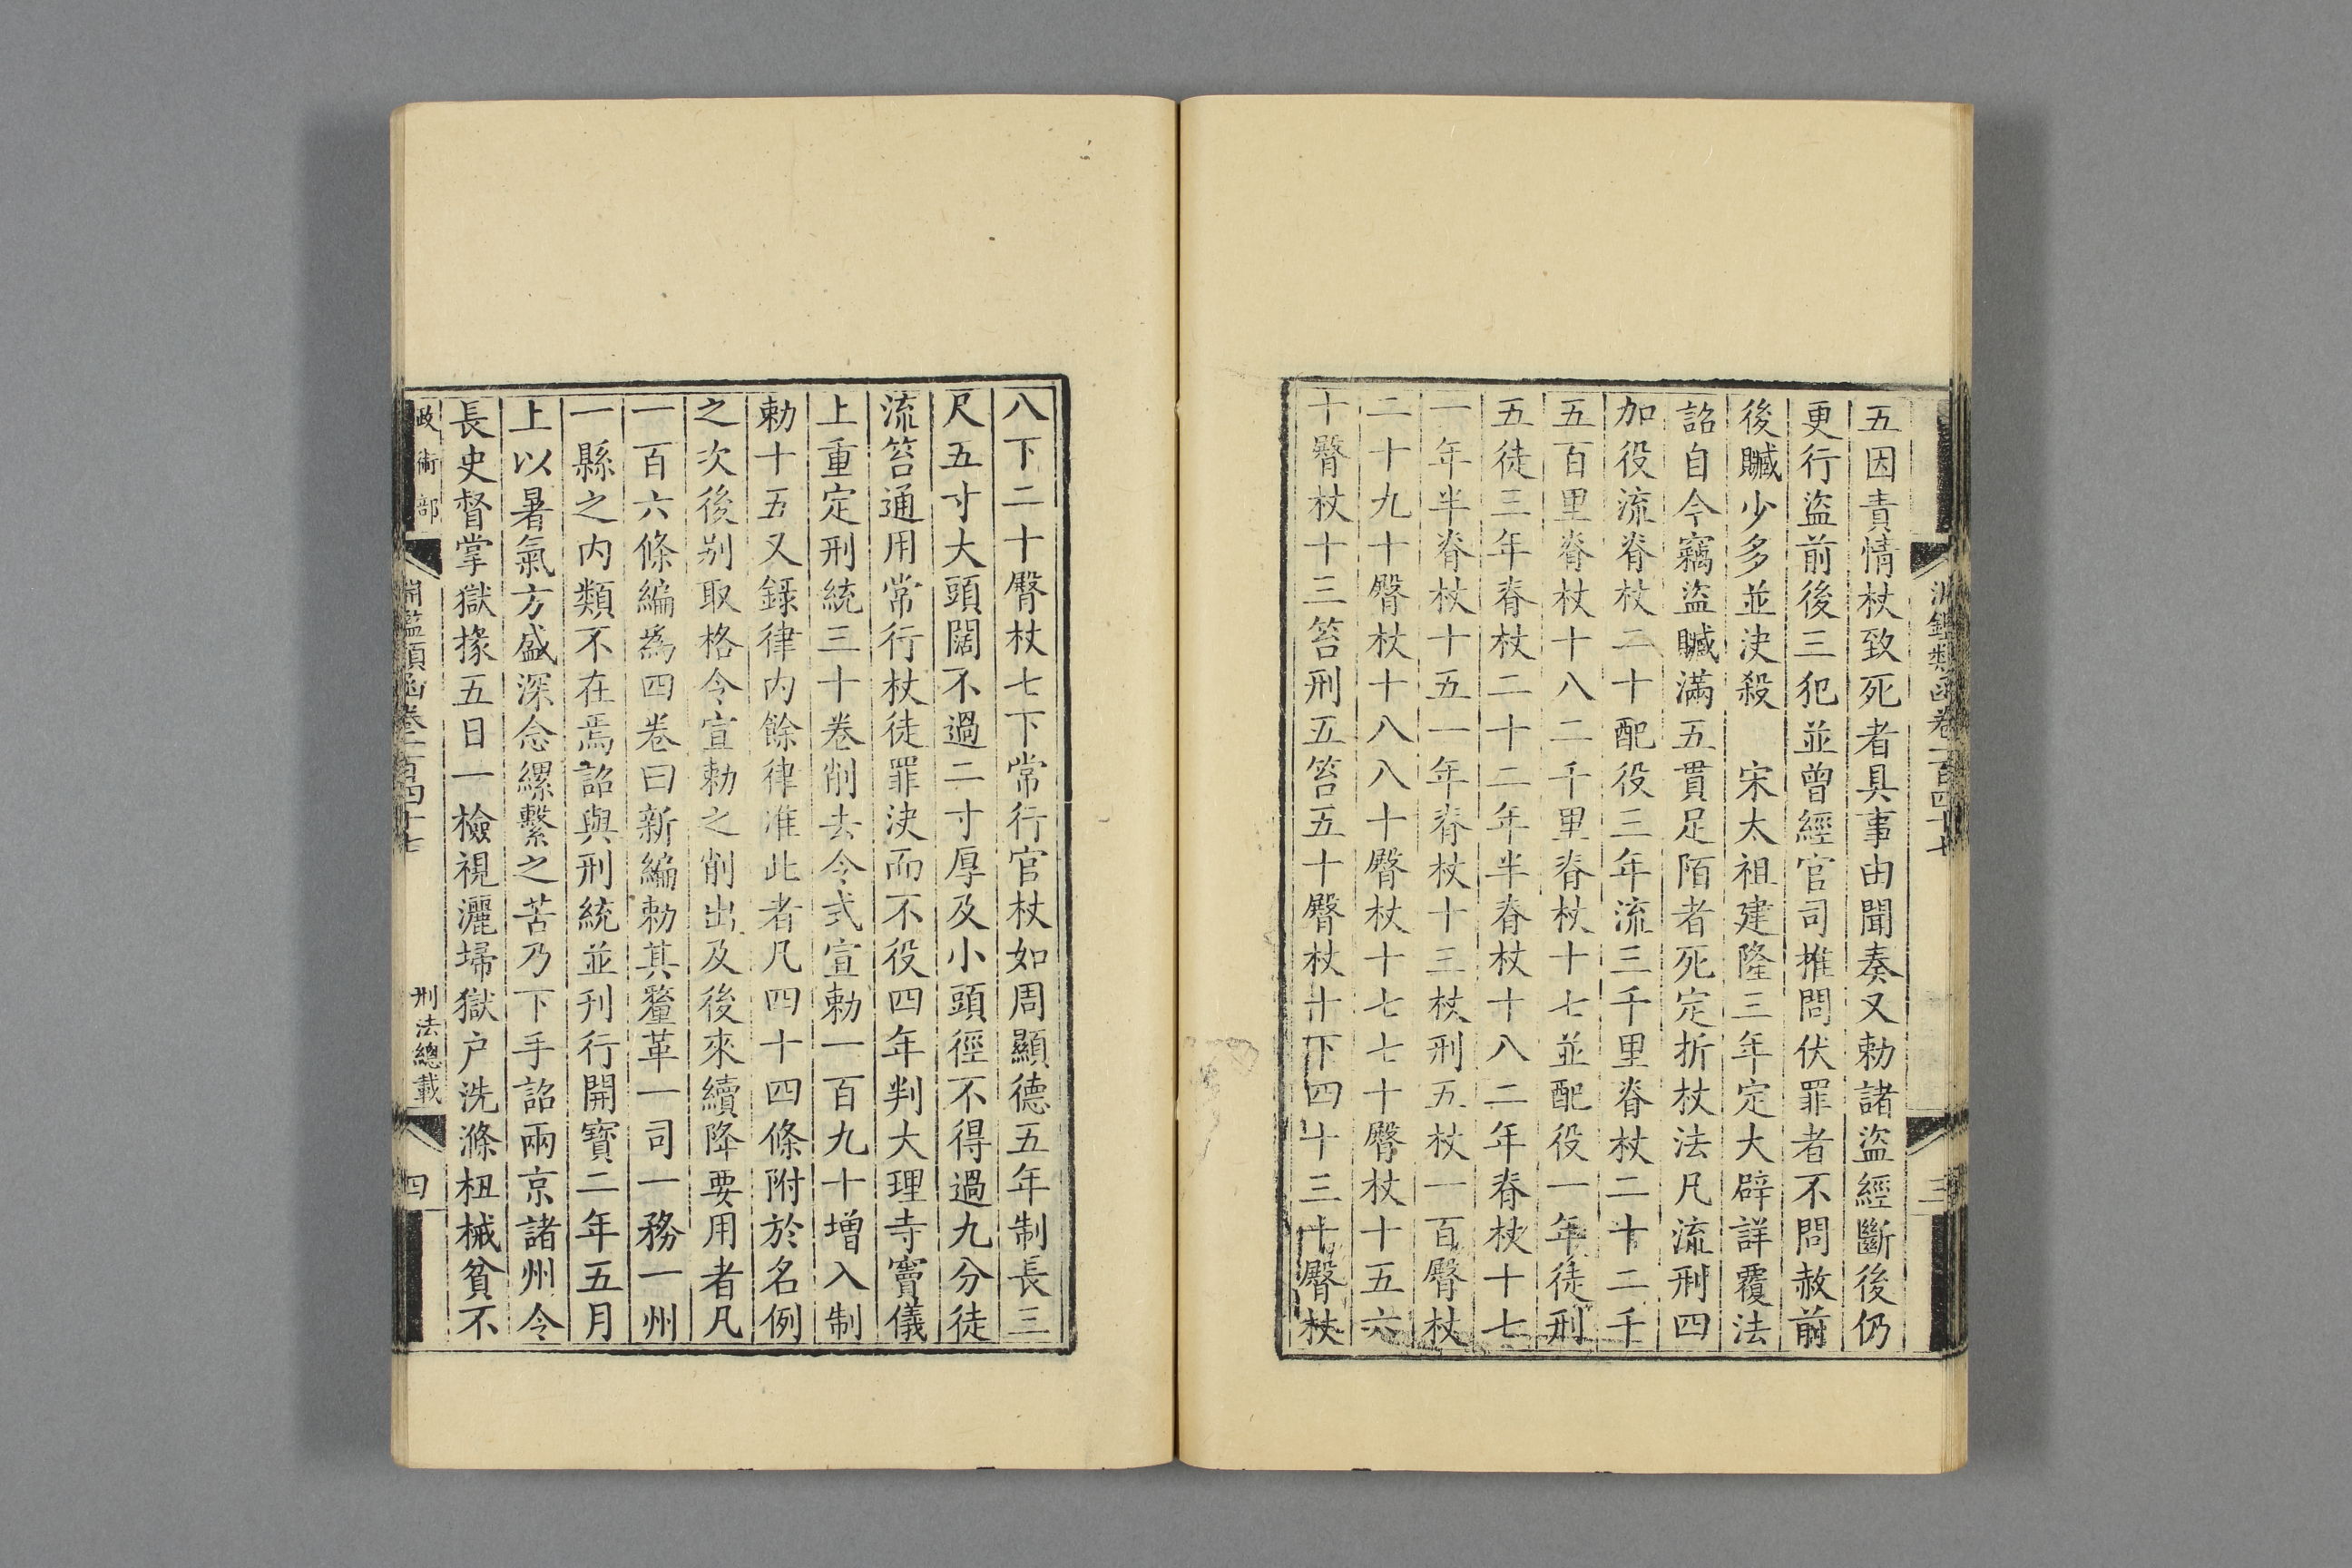 淵鑑類函卷一百四十七
三
五因責情杖致死者具事由聞奏又勅諸盜經斷後仍
更行盜前後三犯並曾經官司推問伏罪者不問赦前
後贓少多並決殺　宋太祖建隆三年定大辟詳覆法
詔自今竊盜贓滿五貫足陌者死定折杖法凡流刑四
加役流脊杖二十配役三年流三千里脊杖二十二千
五百里脊杖十八二千里脊杖十七並配役一年徒刑
五徒三年脊杖二十二年半脊杖十八二年脊杖十七
一年半脊杖十五一年脊杖十三杖刑五杖一百臀杖
二十九十臀杖十八八十臀杖十七七十臀杖十五六
十臀杖十三笞刑五笞五十臀杖十下四十三十臀杖
八下二十臀杖七下常行官杖如周顯德五年制長三
尺五寸大頭闊不過二寸厚及小頭徑不得過九分徒
流笞通用常行杖徒罪決而不役四年判大理寺竇儀
上重定刑統三十卷削去令式宣勅一百九十增入制
勅十五又錄律內餘律准此者凡四十四條附於名例
之次後別取格令宣勅之削出及後來續降要用者凡
一百六條編爲四卷曰新編勅其釐革一司一務一州
一縣之內類不在焉詔與刑統並刊行開寶二年五月
上以暑氣方盛深念縲繫之苦乃下手詔兩京諸州令
長史督掌獄掾五日一檢視灑埽獄戶洗滌杻械貧不
政術部
淵鑑類函卷一百四十七
刑法總載
四